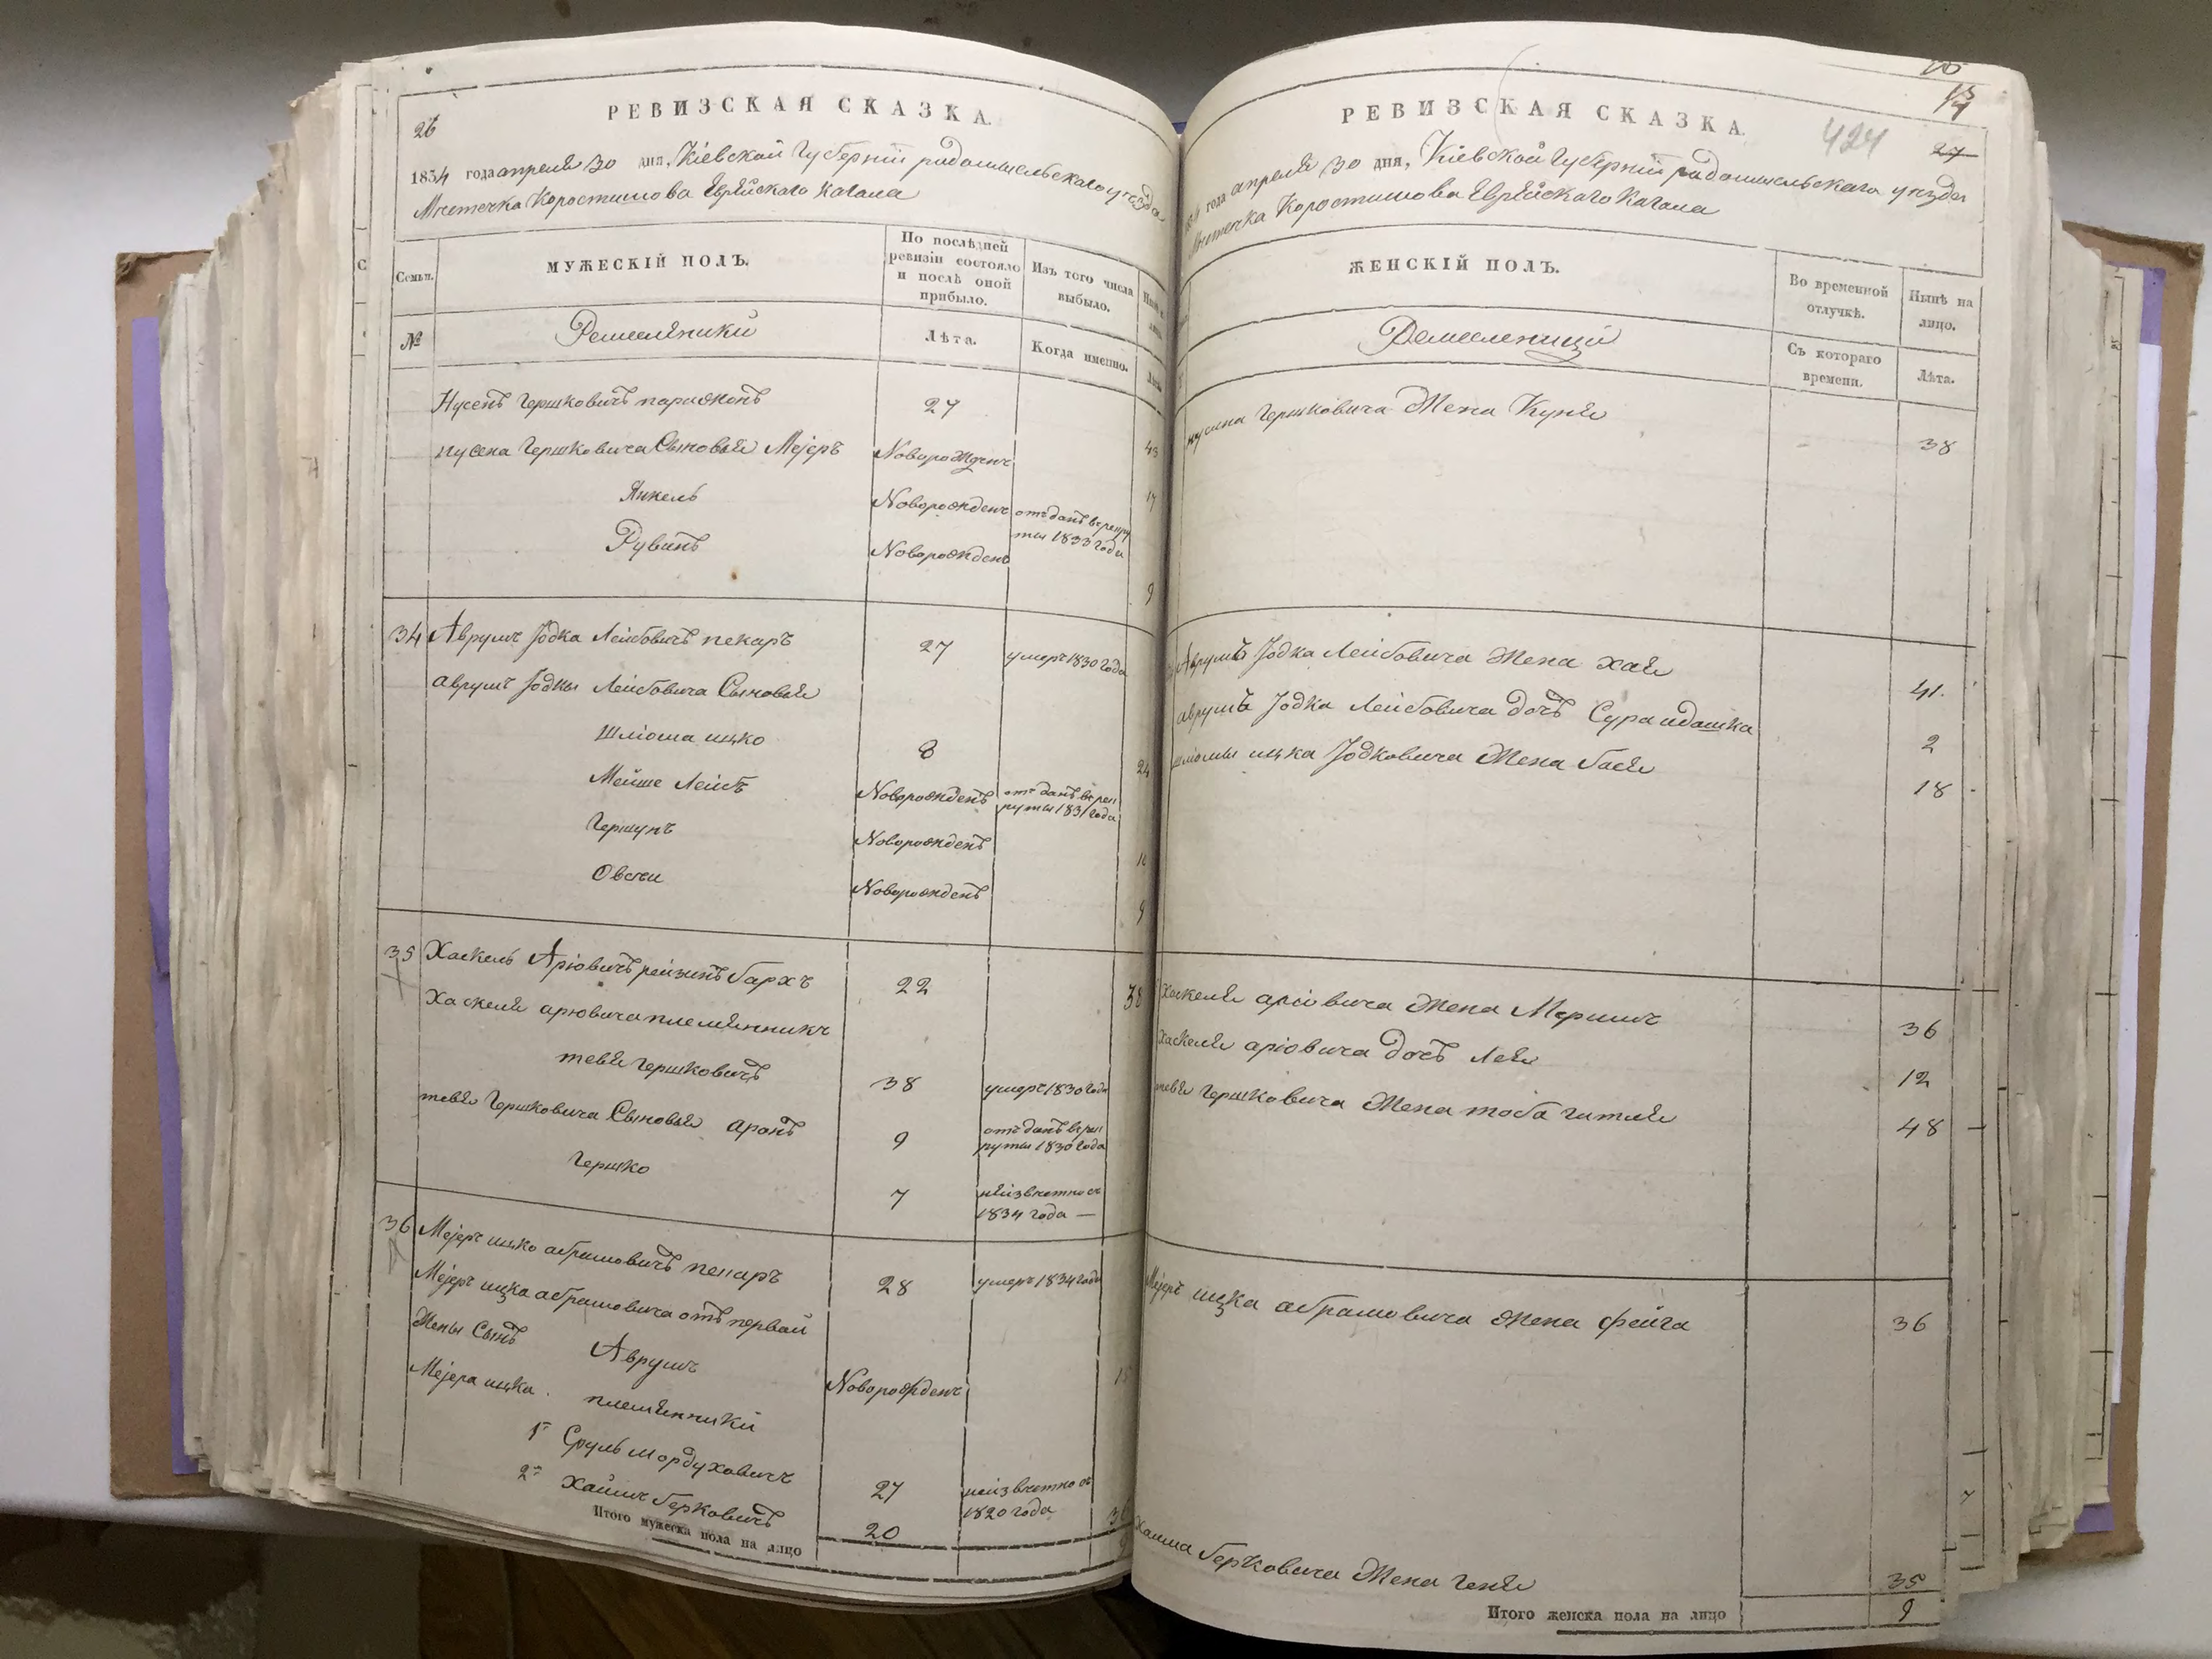 26
РЕВИЗСКАЯ СКАЗКА.
1834 года апреля 30 дня, Кіевской Губерніи радомисльского уезда
Местечка Коростишова Еврейскаго Кагала
Семьи.
МУЖЕСКІЙ ПОЛЪ.
По послѣдней ревизіи состояло и послѣ оной прибыло.
Изъ того числа выбыло.
№
Ремесленики
Лѣта.
Когда именно.
Нусенъ Гершковичъ 27
нусена Гершковича Сыновья Меjеръ Новорожденъ 17
Янкель Новорожденъ отъданъ врекруты 1833 года
Рувинъ Новорожденъ 9
34 Аврумъ Jодка Лейбовичъ пекаръ 27 умеръ 1830 года
аврумъ Jодкы Лейбовича Сыновья
Шліома ицко 8 24
Мейше Лейбъ Новорожденъ отъданъ врекруты 1831 года
Гершунъ Новорожденъ
Овсеи Новорожденъ 9
35 Хаскель Аріовичъ 22 38
Хаскеля аріовича племянникъ
тевя Гершковичъ 38 умеръ 1830 года
тевя Гершковича Сыновья аронъ 9 отъданъ врекруты 1830 года
Гершко 7 неизвестно съ 1834 года —
36 Меjеръ ицко абрамовичъ пекаръ 28 умеръ 1834 года
Меjеръ ицка абрамовича отъ первой
Жены Сынъ Аврумъ Новорожденъ 15
Меjера ицка племянники
1й Сруль Мордуховичъ 27 неизвестно съ 1820 года
2й Хаимъ Берковичъ 20
Итого мужеска пола на лицо
РЕВИЗСКАЯ СКАЗКА.
424
27
года апреля 30 дня, Кіевской Губерніи радомисльского уезда
Местечка Коростишова Еврейскаго Кагала
ЖЕНСКІЙ ПОЛЪ.
Во временной отлучкѣ.
Нынѣ на лицо.
Ремесленици
Съ котораго времени.
Лѣта.
нусина Гершковича Жена Куня 38
Аврумъ Jодка Лейбовича Жена Хая 41
аврумъ Jодка Лейбовича дочъ Сура 2
шліомы ицка Jодковича Жена бася 18
Хаскеля аріовича Жена Меримъ 36
Хаскеля аріовича дочъ Лея 12
тевя Гершковича Жена тоба гитля 48
Меjеръ ицка абрамовича Жена фейга 36
Хаима Берковича Жена геня 35
Итого женска пола на лицо 9